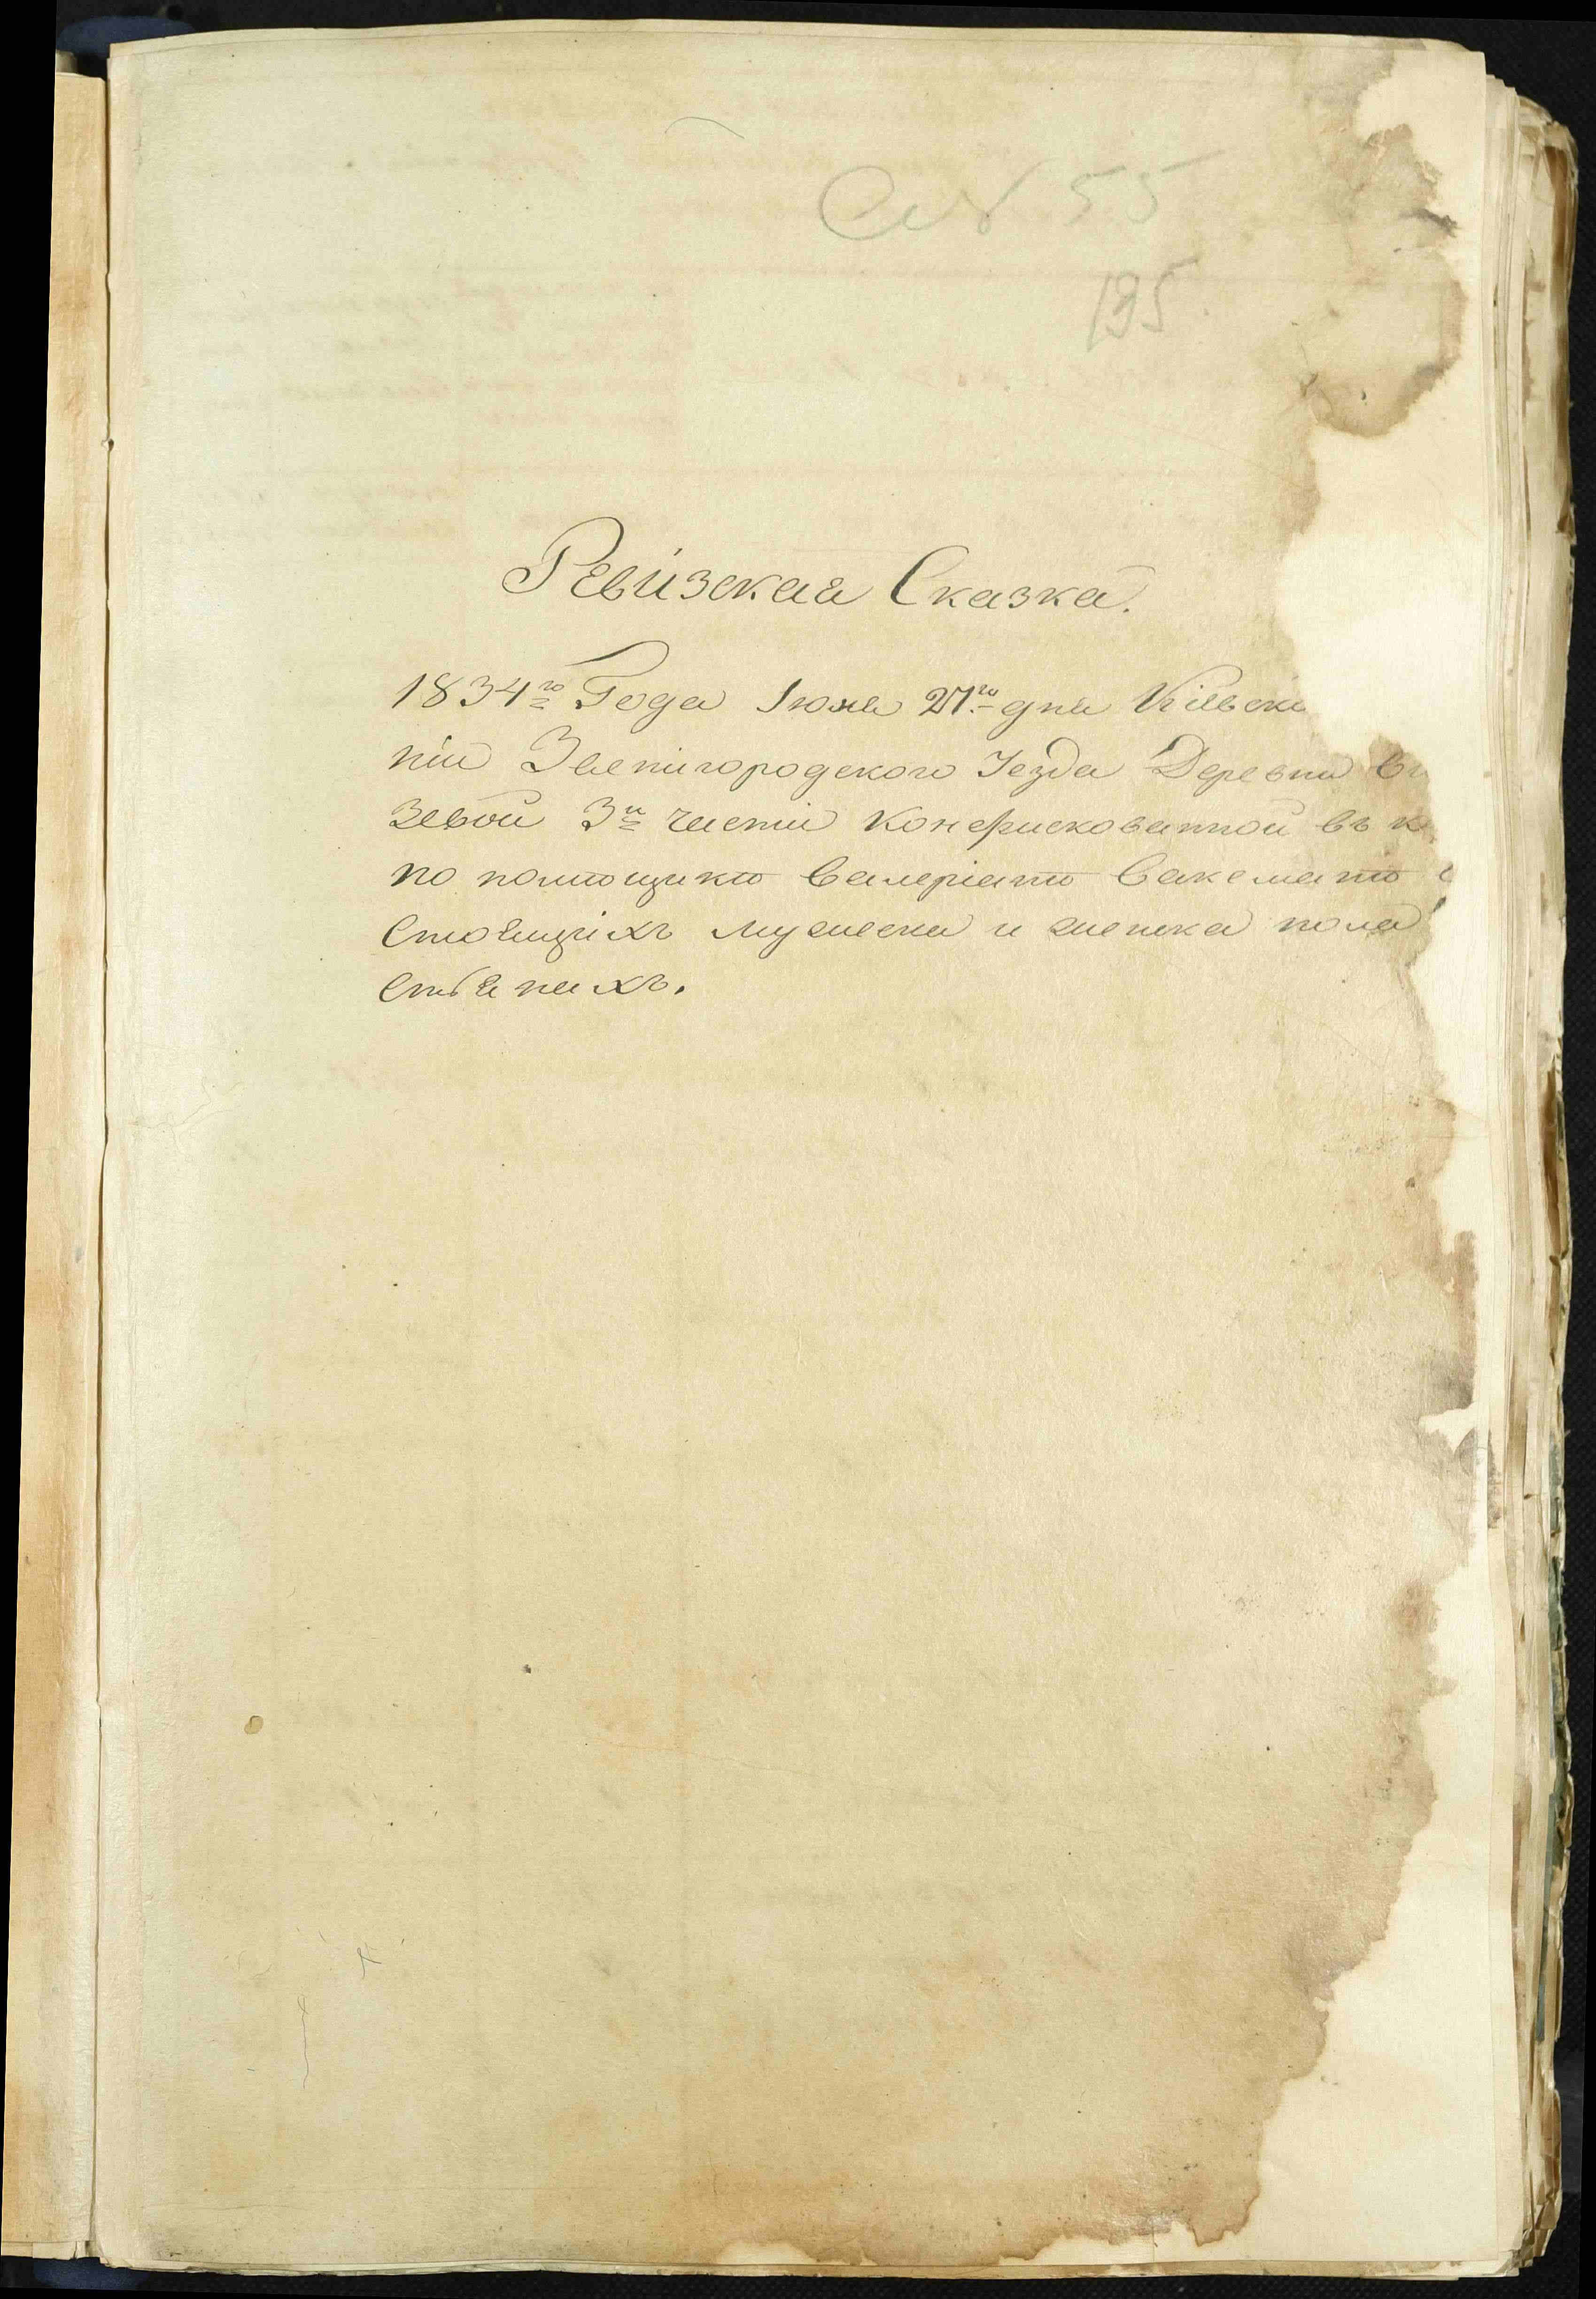 55
195
Ревизская Сказка.
1834го Года Июня 27го дня Кіевск
нии Звенигородского Уезда Деревни
зевой 3й части Конфискованной въ к
по помещику Валеріану
стоящихъ мужеска и женска пола